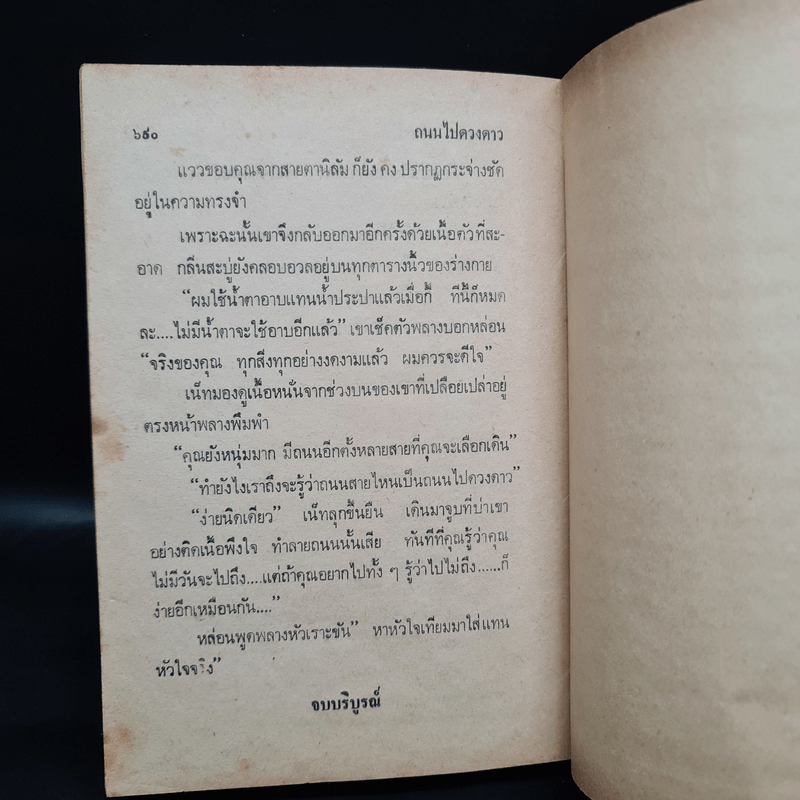 ๖๙๐ ถนนไปดวงดาว
แววขอบคุณจากสายตานิลัม ก็ยัง คง ปรากฏกระจ่างชัด
อยู่ในความทรงจำ
เพราะฉะนั้นเขาจึงกลับออกมาอีกครั้งด้วยเนื้อตัวที่สะ-
อาด กลิ่นสะบู่ยังคลอบอวลอยู่บนทุกตารางนิ้วของร่างกาย
“ผมใช้น้ำตาอาบแทนน้ำประปาแล้วเมื่อกี้ ทีนี้ก็หมด
ละ....ไม่มีน้ำตาจะใช้อาบอีกแล้ว” เขาเช็ดตัวพลางบอกหล่อน
“จริงของคุณ ทุกสิ่งทุกอย่างงดงามแล้ว ผมควรจะดีใจ”
เน็ทมองดูเนื้อหนั่นจากช่วงบนของเขาที่เปลือยเปล่าอยู่
ตรงหน้าพลางพึมพำ
“คุณยังหนุ่มมาก มีถนนอีกตั้งหลายสายที่คุณจะเลือกเดิน”
“ทำยังไงเราถึงจะรู้ว่าถนนสายไหนเป็นถนนไปดวงดาว”
“ง่ายนิดเดียว” เน็ทลุกขึ้นยืน เดินมาจูบที่บ่าเขา
อย่างติดเนื้อพึงใจ ทำลายถนนนั้นเสีย ทันทีที่คุณรู้ว่าคุณ
ไม่มีวันจะไปถึง....แต่ถ้าคุณอยากไปทั้ง ๆ รู้ว่าไปไม่ถึง......ก็
ง่ายอีกเหมือนกัน....”
หล่อนพูดพลางหัวเราะขัน” หาหัวใจเทียมมาใส่แทน
หัวใจจริง”
จบบริบูรณ์